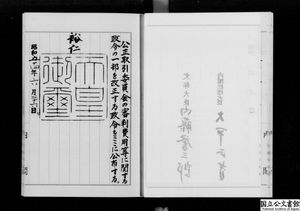 公正取引委員会の審判費用等に関する
政令の一部を改正する政令をここに公布する。
裕仁
天皇
御璽
昭和五十四年六月
内閣総理大臣 大平正芳
文部大臣 内藤誉三郎
国立公文書館
National Archives of Japan